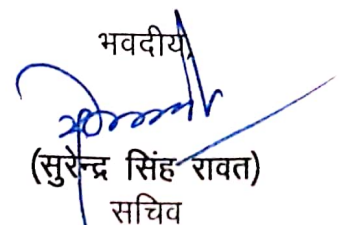 भवदीय,
(सुरेन्द्र सिंह रावत)
सचिव